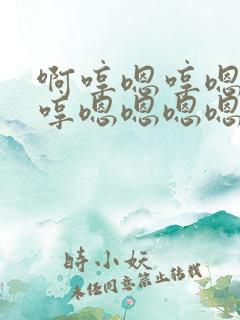 啊哼嗯哼嗯
哼嗯嗯嗯嗯
時小妖
未经同意禁止转载